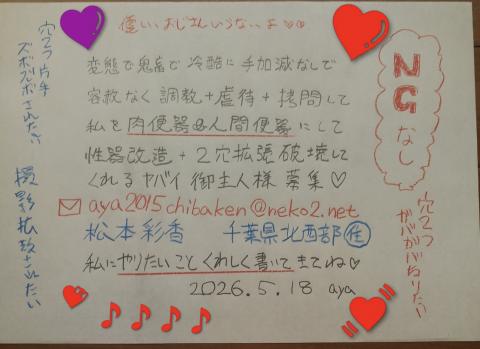 優しいおじさんいらないよ♡♡
穴2つ片手
ズボズボされたい
撮影拡散されたい
変態で鬼畜で冷酷に手加減なしで
容赦なく調教+虐待+拷問して
私を肉便器&人間便器にして
性器改造+2穴拡張破壊して
くれるヤバイ御主人様募集♡
aya2015chibaken@neko2.net
松本彩香 千葉県北西部住
私にやりたいことくわしく書いてきてね♡
2026.5.18 aya
NGなし
穴2つ
ガバガバになりたい